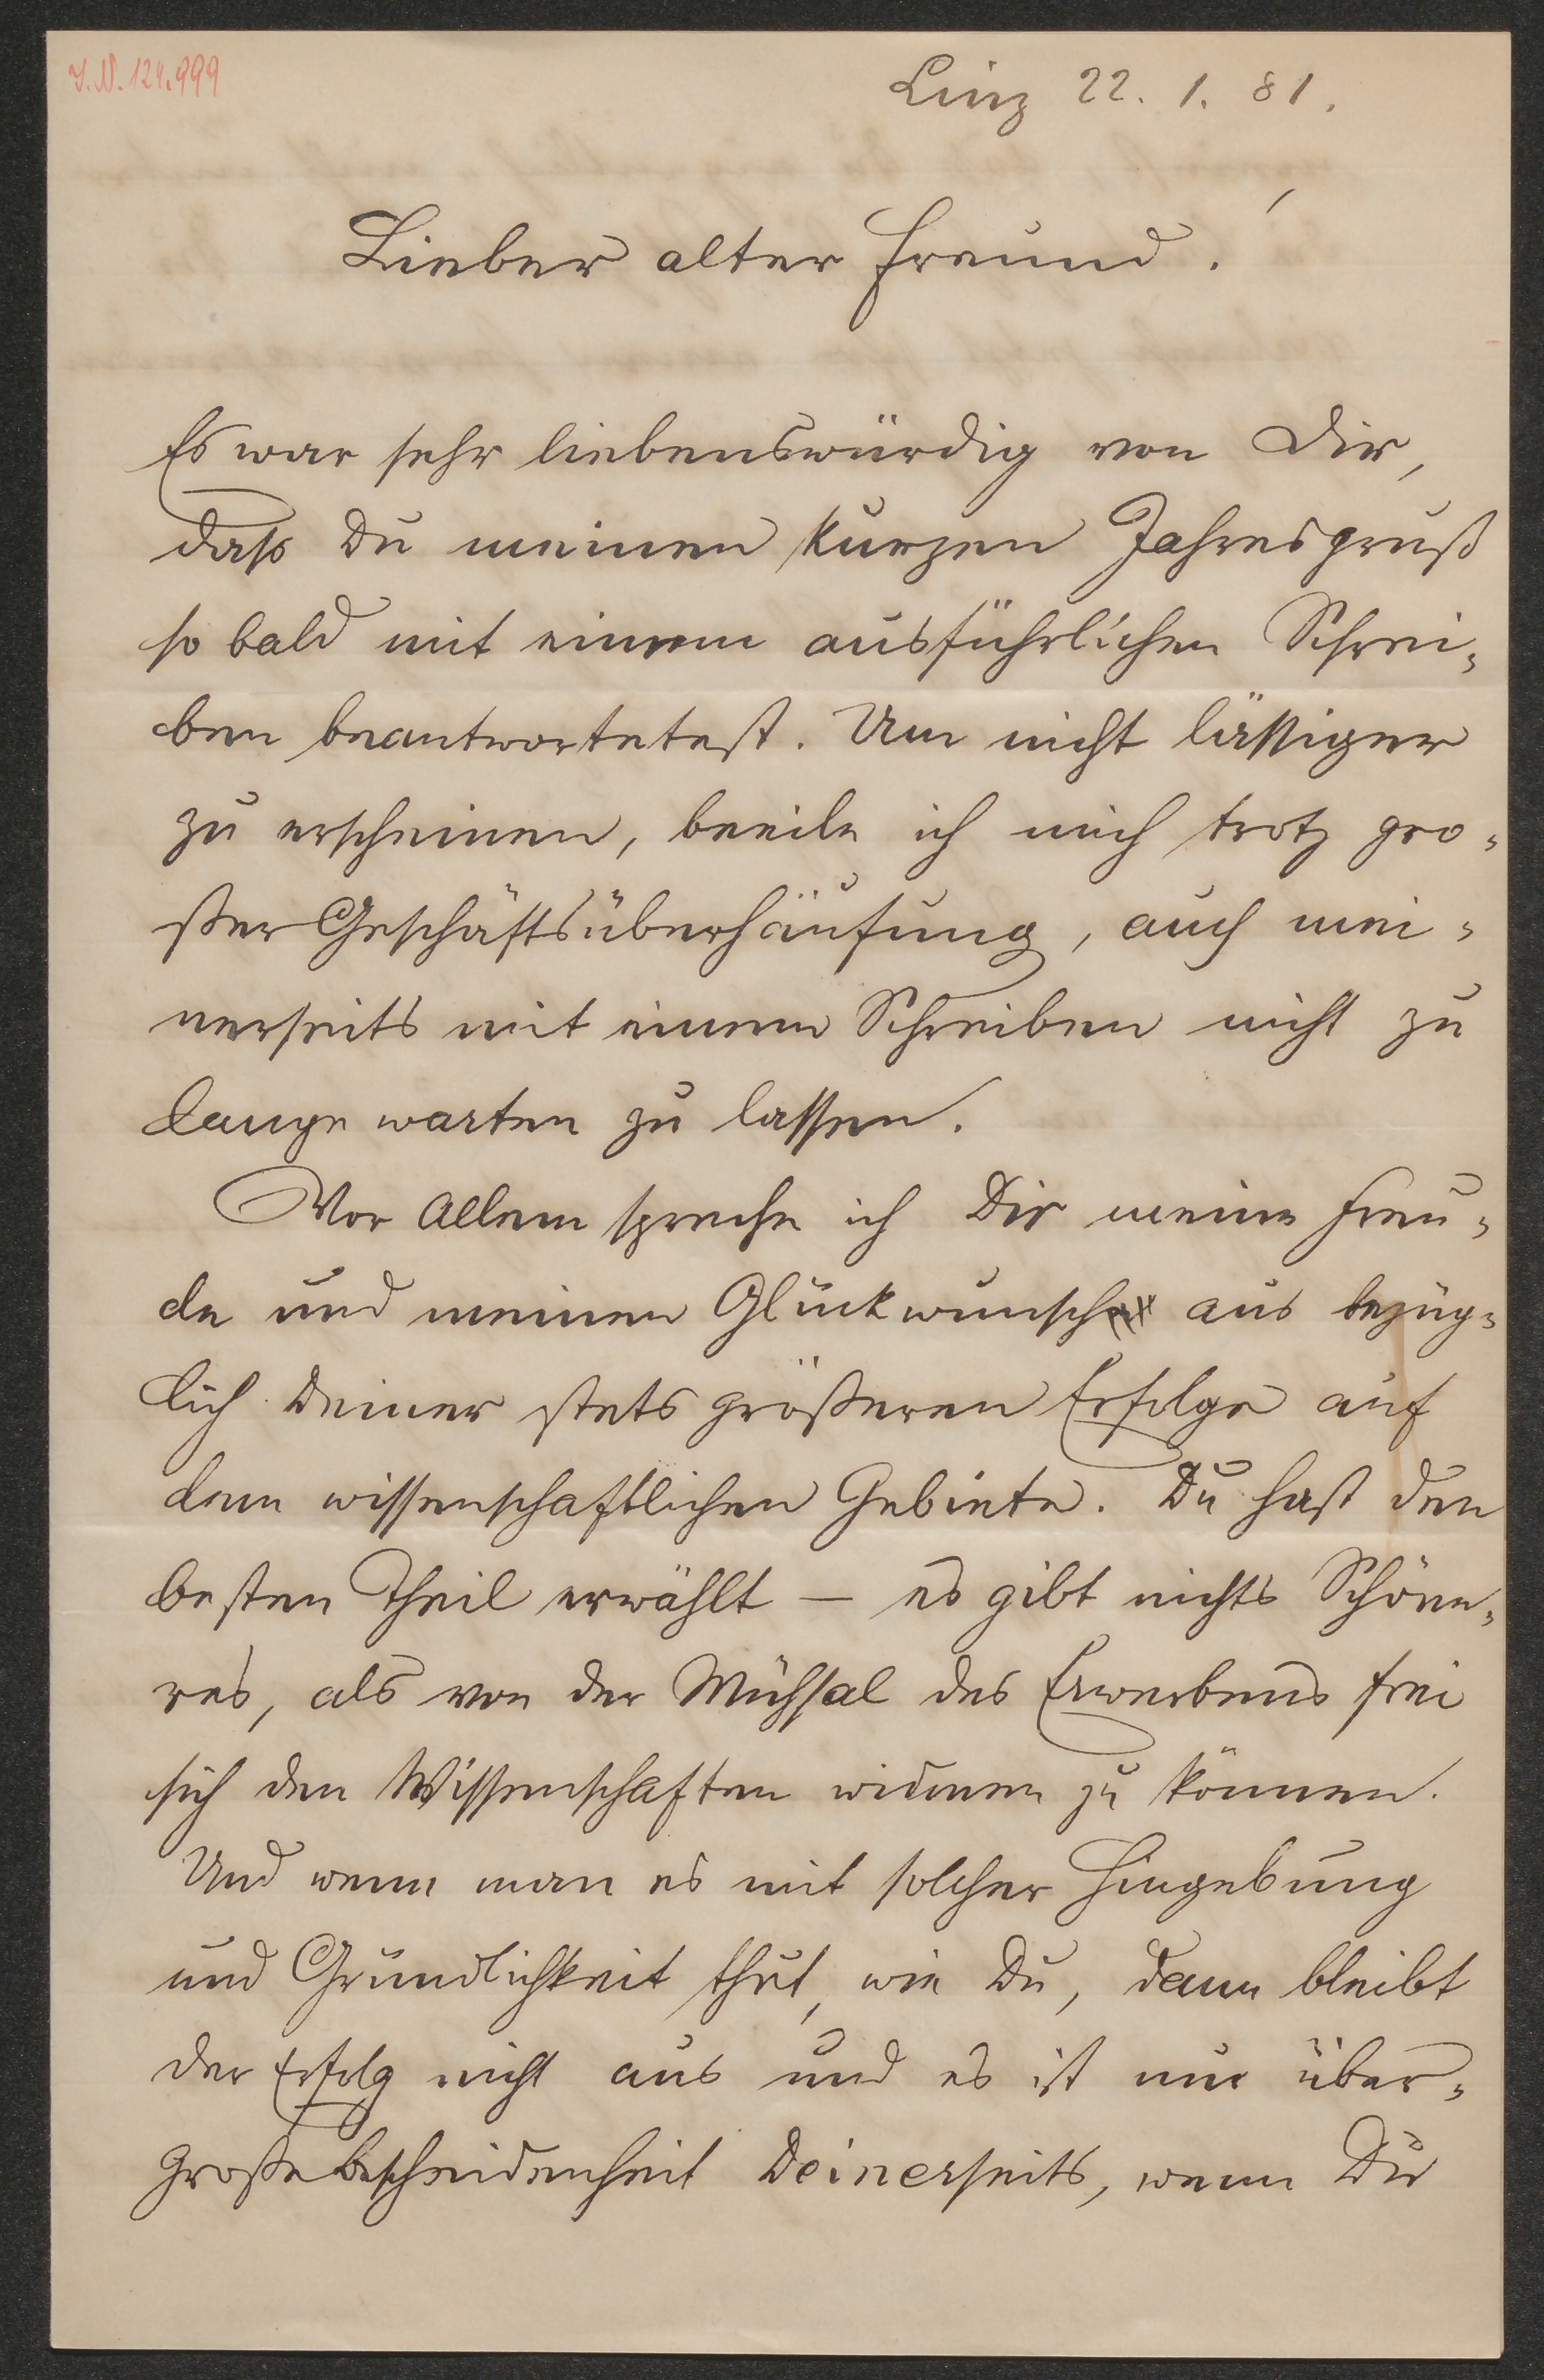 I.N. 124.999
Linz 22. 1. 81.
Lieber alter Freund!
Es war sehr liebenswürdig von Dir,
dass Du meinen kurzen Jahresgruß
so bald mit einem ausführlichen Schrei-
ben beantwortetest. Um nicht lässiger
zu erscheinen, beeile ich mich trotz gro-
ßer Geschäftsüberhäufung, auch mei-
nerseits mit einem Schreiben nicht zu
lange warten zu lassen.
Vor Allem spreche ich Dir meine Freu-
de und meinen Glückwunsch aus bezüg-
lich Deiner stets größeren Erfolge auf
dem wissenschaftlichen Gebiete. Du hast den
besten Theil erwählt – es gibt nichts Schöne-
res, als von der Mühsal des Erwerbens frei
sich den Wissenschaften widmen zu können.
Und wenn man es mit solcher Hingebung
und Gründlichkeit thut, wie Du, dann bleibt
der Erfolg nicht aus und es ist nur über-
große Bescheidenheit Deinerseits, wenn Du